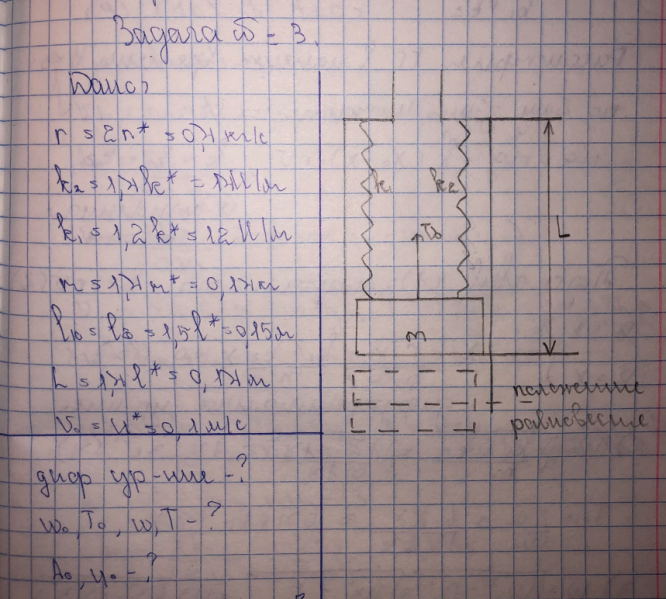 Задача № = 3.
Дано:
r = 2r* = 0,1 кг/с
k₂ = 1,7k* = 17 Н/м
k₁ = 1,2k* = 12 Н/м
m = 1,7m* = 0,17кг
l₁₀ = l₂₀ = 1,5l* = 0,15м
L = 1,7l* = 0,17м
V₀ = u* = 0,1 м/с
диф ур-ние - ?
ω₀, T₀, ω, T - ?
A₀, φ₀ - ?
k₁
k₂
V₀
L
m
положение
равновесия